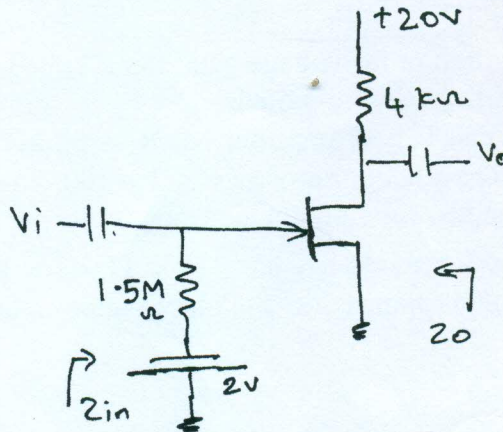 +20V
4 kΩ
Vo
Vi
1.5M
Ω
2V
Zin
Zo